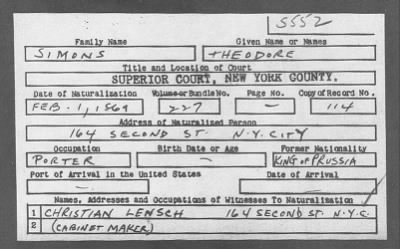 5552
Family Name Given Name or Names
SIMONS THEODORE
Title and Location of Court
SUPERIOR COURT, NEW YORK COUNTY.
Date of Naturalization Volume or Bundle No. Page No. Copy of Record No.
FEB. 1, 1869 227 — 114
Address of Naturalized Person
164 SECOND ST. N.Y. CITY
Occupation Birth Date or Age Former Nationality
PORTER — KING OF PRUSSIA
Port of Arrival in the United States Date of Arrival
— —
Names, Addresses and Occupations of Witnesses To Naturalization
1 CHRISTIAN LENSCH 164 SECOND ST. N.Y.C.
2 (CABINET MAKER)